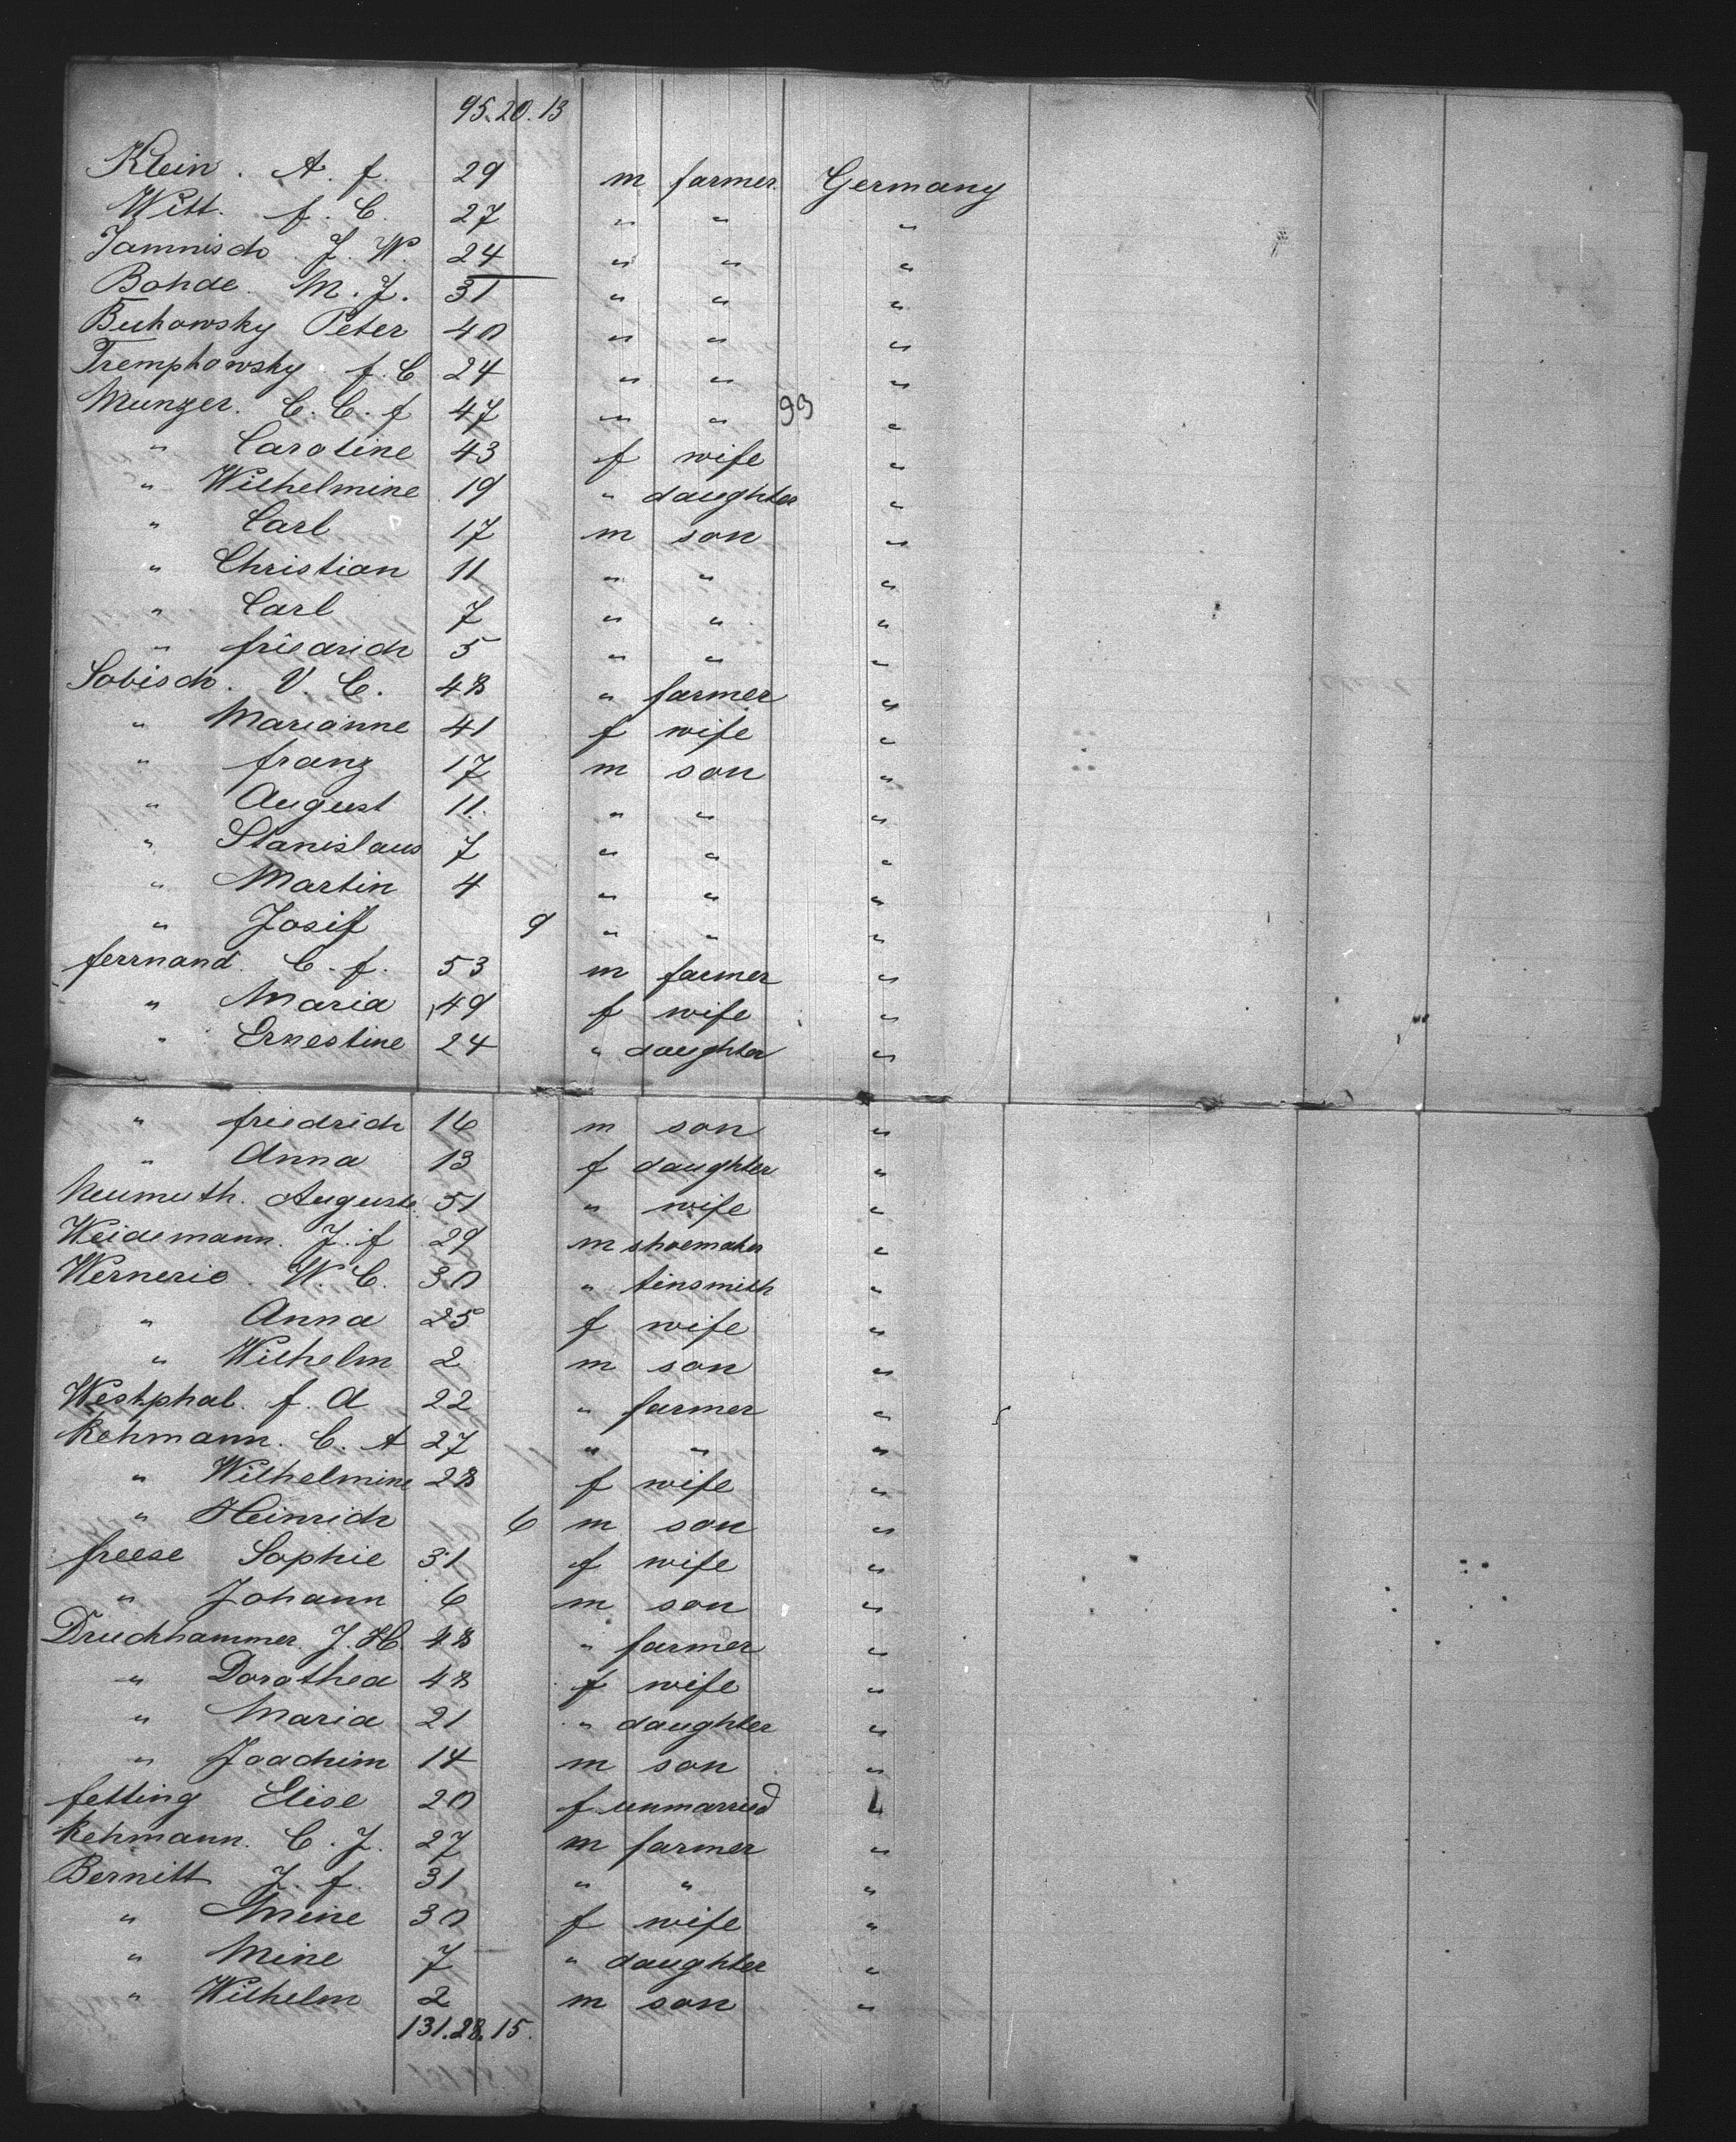 95.20.13
Klein. A. f. 29 m farmer Germany
Witt. f. C. 27 " " "
Jamnisch. J. W. 24 " " "
Bohde. M. J. 31 " " "
Buhowsky Peter 40 " " "
Tremphowsky. f. C 24 " " "
Munzer. C. C. f 47 " " 99 "
" Caroline 43 f wife "
" Wilhelmine 19 " daughter "
" Carl 17 m son "
" Christian 11 " " "
" Carl 7 " " "
" friedrich 5 " " "
Sobisch. V. C. 48 " farmer "
" Marianne 41 f wife "
" franz 17 m son "
" August 11. " " "
" Stanislaus 7 " " "
" Martin 4 " " "
" Josif 9 " " "
ferrnand. C. f. 53 m farmer "
" Maria 49 f wife "
" Ernestine 24 " daughter "
" friedrich 16 m son "
" Anna 13 f daughter "
Neumuth. Auguste 51 " wife "
Weidemann. J. f 29 m shoemaker "
Wernerie. W. C. 30 " tinsmith "
" Anna 25 f wife "
" Wilhelm 2 m son "
Westphal. f. A 22 " farmer "
Rehmann. C. A 27 " " "
" Wilhelmine 28 f wife "
" Heinrich 6 m son "
freese Sophie 31 f wife "
" Johann 6 m son "
Druckhammer J. H. 48 " farmer "
" Dorothea 48 f wife "
" Maria 21 " daughter "
" Joachim 14 m son "
fetting Elise 20 f unmarried "
Rehmann. C. J. 27 m farmer "
Bernitt J. f. 31 " " "
" Mine 30 f wife "
" Mine 7 " daughter "
" Wilhelm 2 m son "
131.28.15.